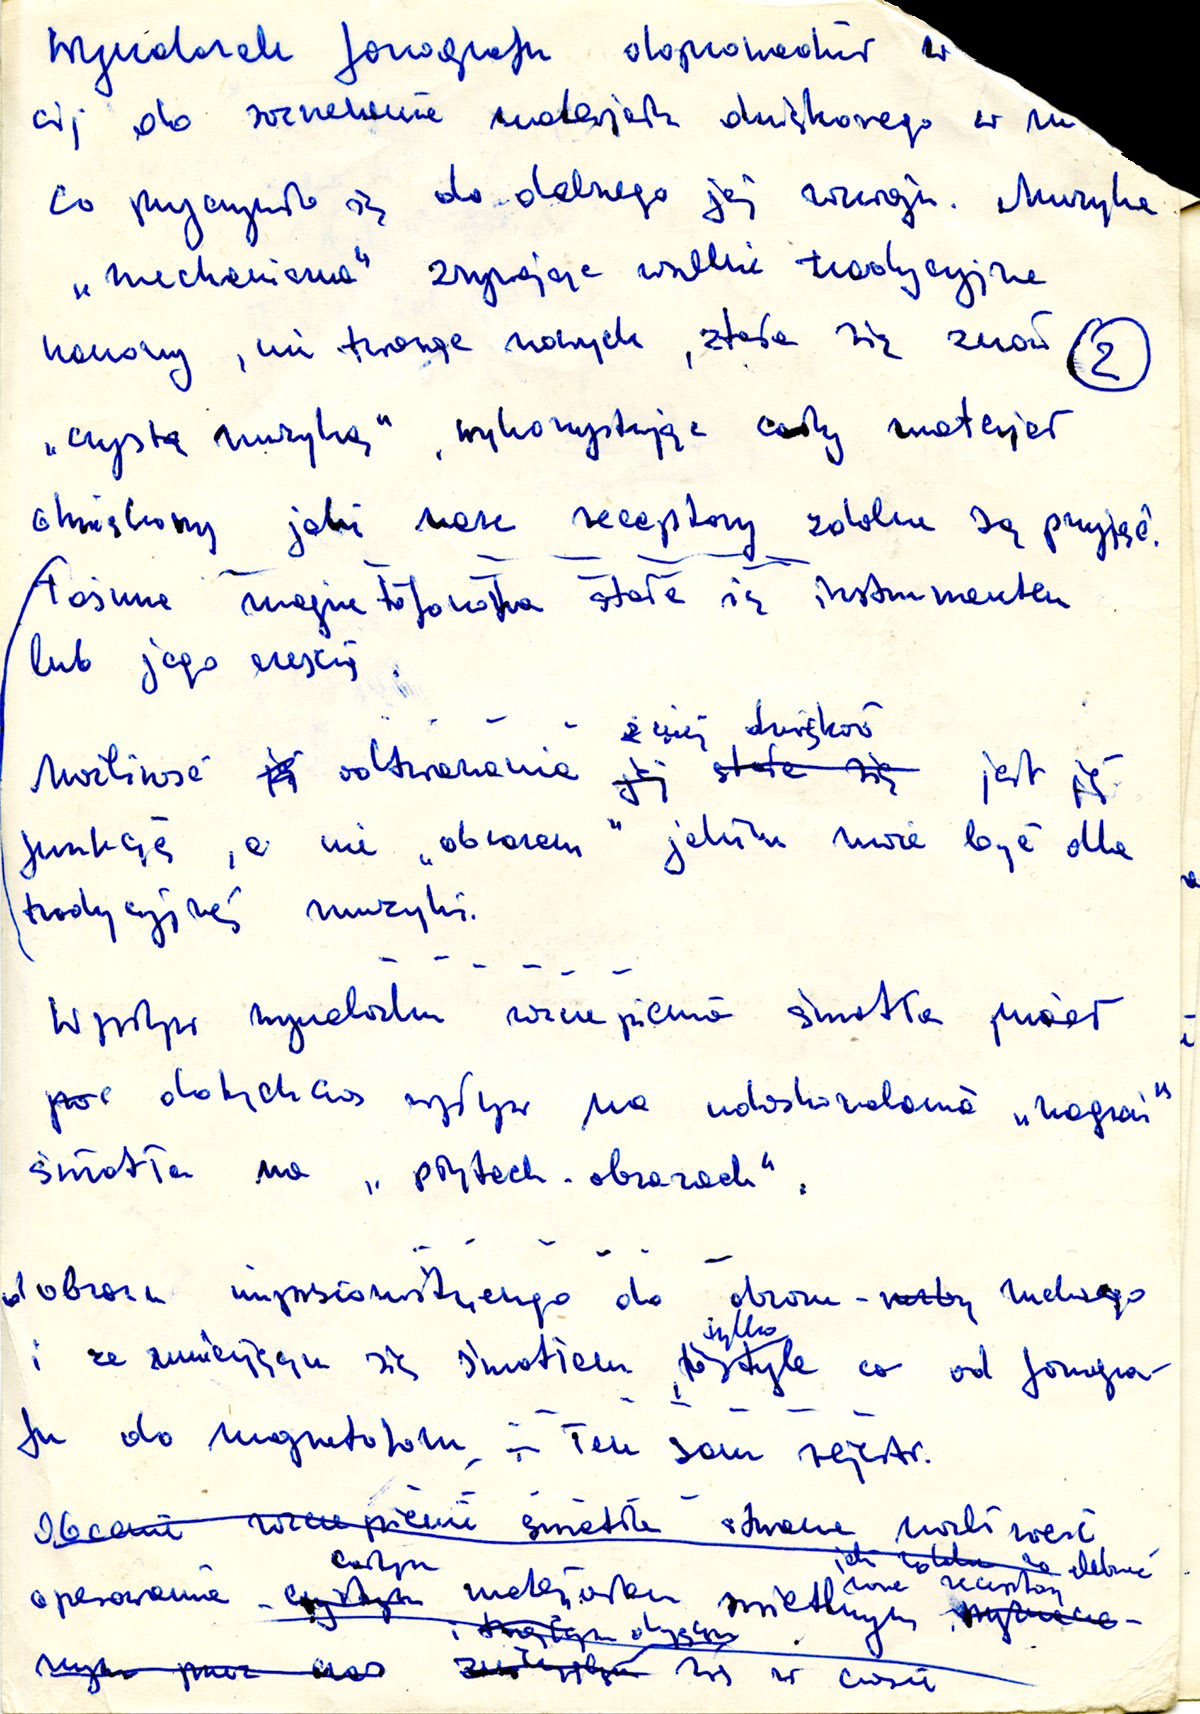 Wynalazek fonografu doprowadził w
cij do rozszerzenia materjału dźwiękowego w mu
co przyczyniło się do dalszego jej rozwoju. Muzyka
„mechaniczna" zrywając wszelkie tradycyjne
kanony, nie tworząc nowych, stała się znów
2
„czystą muzyką", wykorzystując cały materjał
dźwiękowy jaki nasze receptory zdolne są przyjąć.
Taśma magnetofonowa stała się instrumentem
lub jego częścią.
z niej dźwięków
Możliwość jej odtwarzania jej stała się jest jej
funkcją, a nie „obrazem" jakim może być dla
tradycyjnej muzyki.
Wpływ wynalazku rozszczepienia światła miał
dotychczas wpływ na udoskonalenie „nagrań"
światła na „płytach-obrazach".
od obrazu impresjonistycznego do obrazu - ruchomego
tylko
i ze zmieniającym się światłem, tyle co od fonogra-
fu do magnetofonu, – Ten sam rejestr.
Obecnie rozszczepienie światła stwarza możliwość
całym jaki zdolne są odebrać
operowania czystym materjałem świetlnym nasze receptory
i
przez nas się w czasie